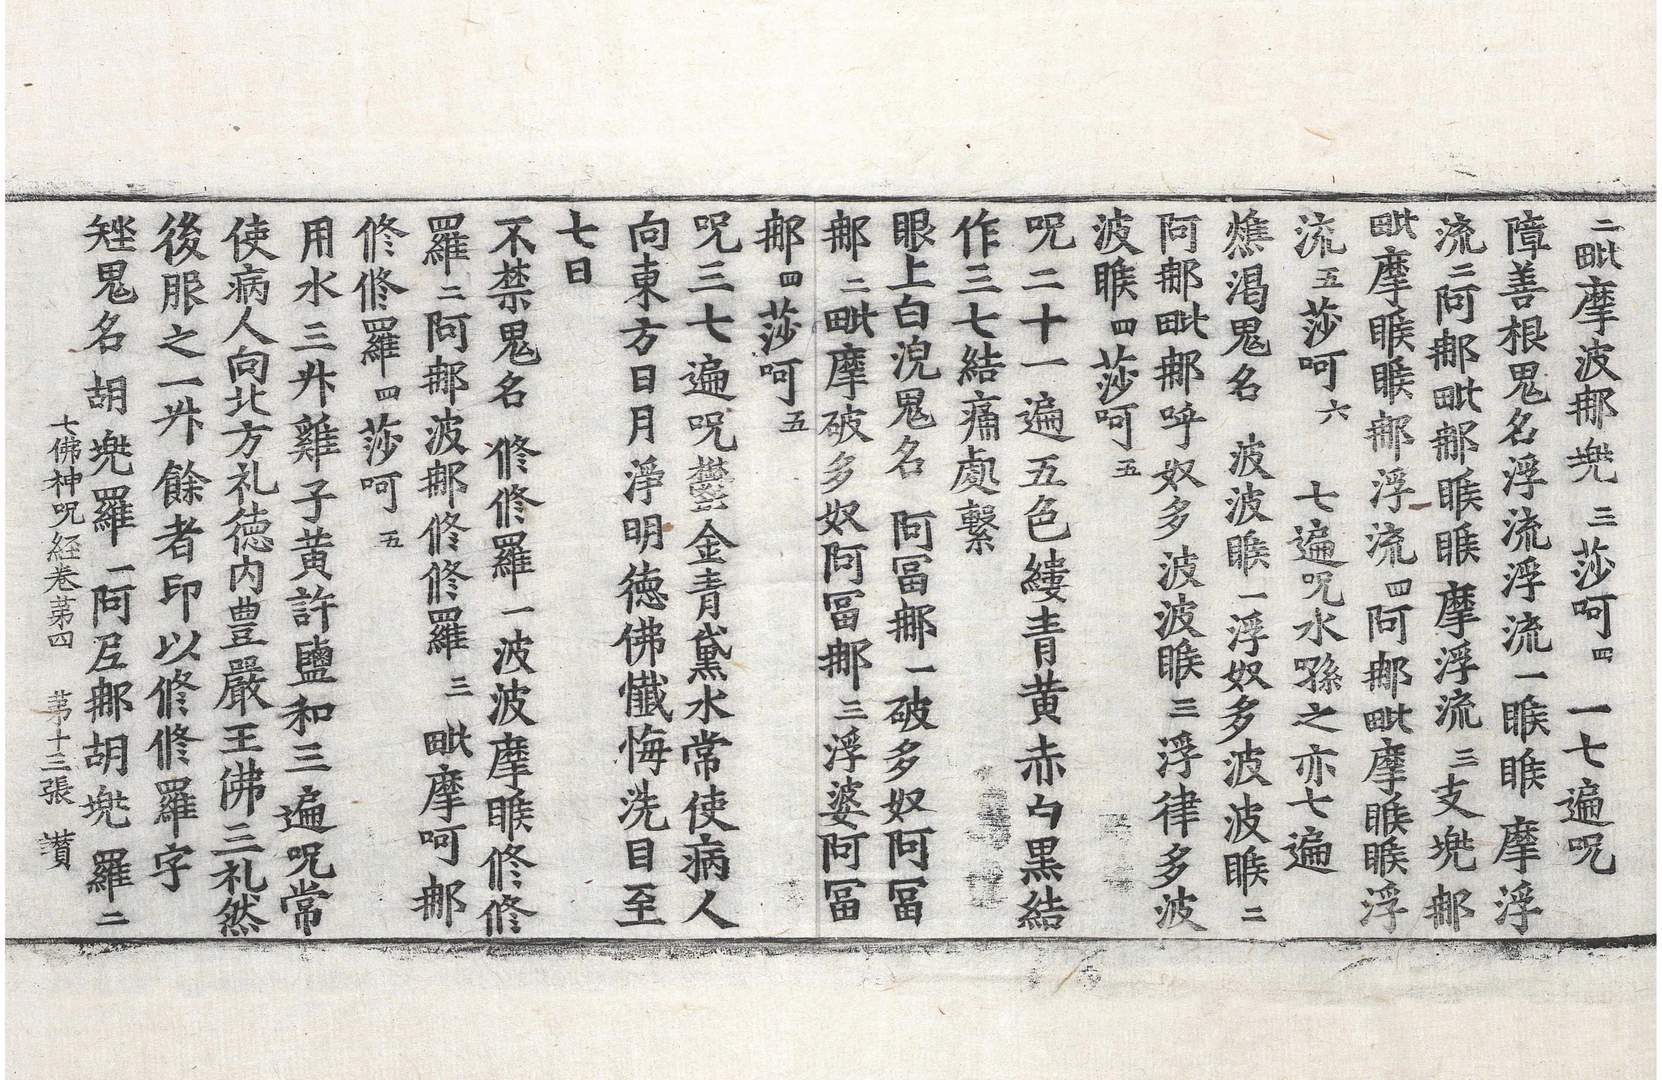 二毗摩波那㘑三莎呵四　一七遍呪
障善根鬼名浮流浮流一睺睺摩浮
流二阿那毗那睺睺摩浮流三支㘑那
毗摩睺睺那浮流四阿那毗摩睺睺浮
流五莎呵六　七遍呪水㗇之亦七遍
燋渴鬼名　波波睺一浮奴多波波睺二
阿那毗那呼奴多波波睺三浮律多波
波睺四莎呵五
呪二十一遍五色縷青黃赤白黑結
作三七結痛處繫
眼上白淣鬼名　阿冨那一破多奴阿冨
那二毗摩破多奴阿冨那三浮婆阿冨
那四莎呵五
呪三七遍呪欝金青黛水常使病人
向東方日月淨明德佛懺悔洗目至
七日
不禁鬼名　修修羅一波波摩睺修修
羅二阿那波那修修羅三毗摩呵那
修修羅四莎呵五
用水三升雞子黃許鹽和三遍呪常
使病人向北方礼德內豊嚴王佛三礼然
後服之一升餘者印以修修羅字
㾌鬼名　胡㘑羅一阿㞋那胡㘑羅二
七佛神呪経卷苐四　苐十三張　讃